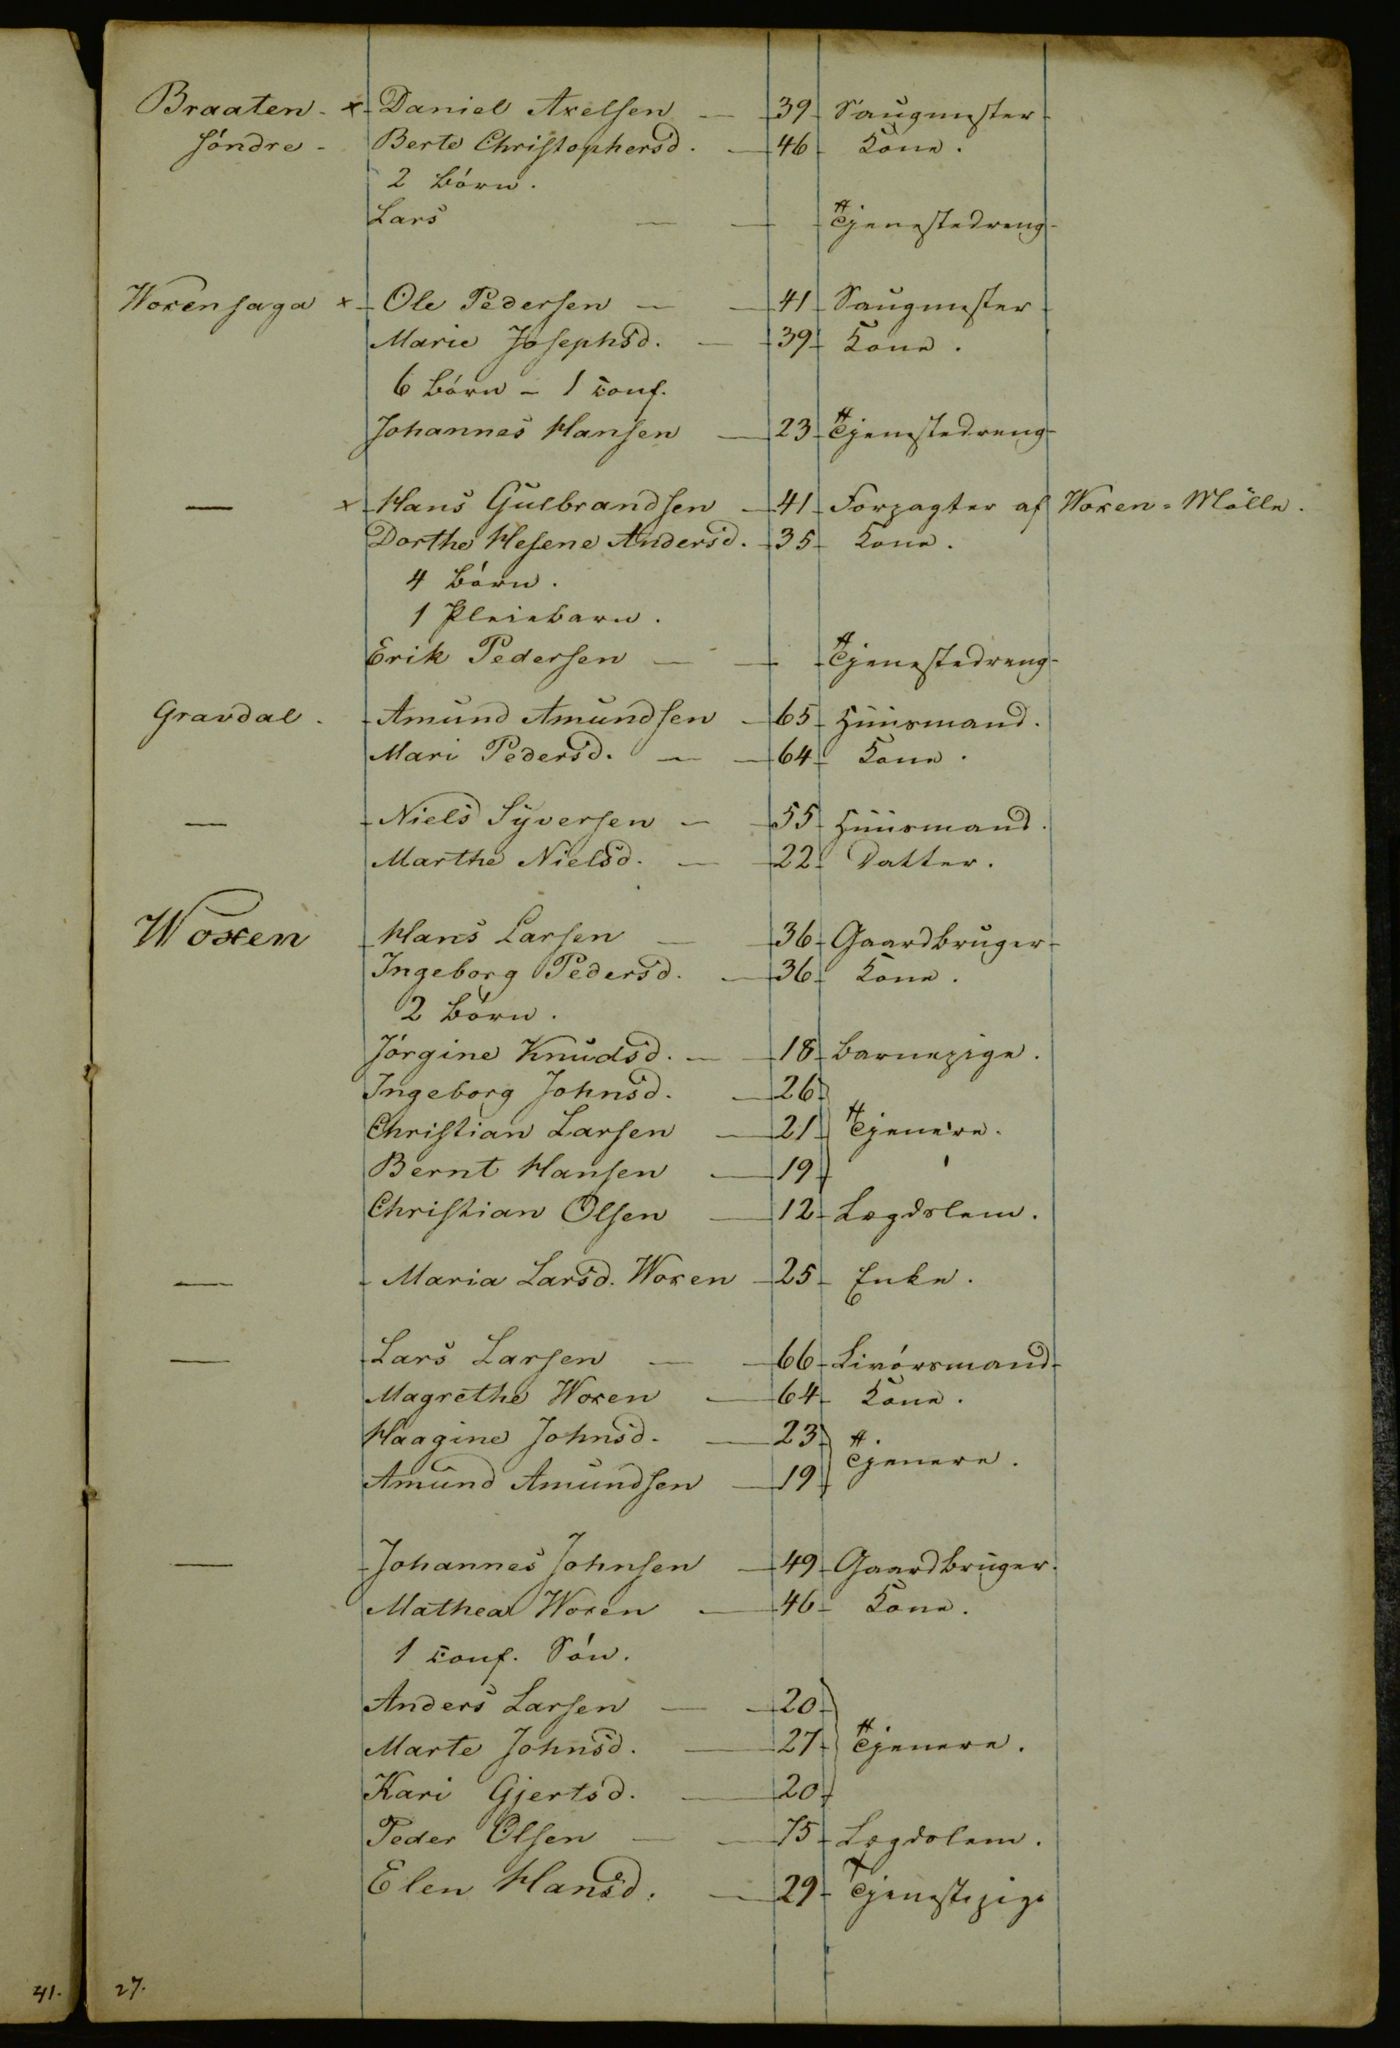 Braaten - x Daniel Axelsen — 39 Saugmester
söndre - Berte Christophersd. — 46 Kone.
2 Börn.
Lars — — Tjenestedreng
Woxensaga x Ole Pedersen — — 41 Saugmester
Marie Josephsd. — 39 Kone.
6 Börn - 1 conf.
Johannes Hansen — 23 Tjenestedreng
— x Hans Gulbrandsen — 41 Forpagter af Woxen-Mölle.
Dorthe Helene Andersd. 35 Kone.
4 Börn.
1 Pleiebarn.
Erik Pedersen — — Tjenestedreng
Gravdal. Amund Amundsen — 65 Huusmand.
Mari Pedersd. — — 64 Kone.
— Niels Syversen — 55 Huusmand.
Marthe Nielsd. — 22 Datter.
Woxen Hans Larsen — 36 Gaardbruger
Ingeborg Pedersd. — 36 Kone.
2 Börn.
Jörgine Knudsd. — 18 Barnepige.
Ingeborg Johnsd. — 26
Christian Larsen — 21 Tjenere.
Bernt Hansen — 19
Christian Olsen — 12 Lægdslem.
— Maria Larsd. Woxen — 25 Enke.
— Lars Larsen — — 66 Livörsmand
Magrethe Woxen — 64 Kone.
Haagine Johnsd. — 23 Tjenere.
Amund Amundsen — 19
— Johannes Johnsen — 49 Gaardbruger.
Mathea Woxen — 46 Kone.
1 conf. Sön.
Anders Larsen — — 20
Marte Johnsd. — 27 Tjenere.
Kari Gjertsd. — 20
Peder Olsen — — 75 Lægdslem.
Elen Hansd. — 29 Tjenestepige
41. 27.